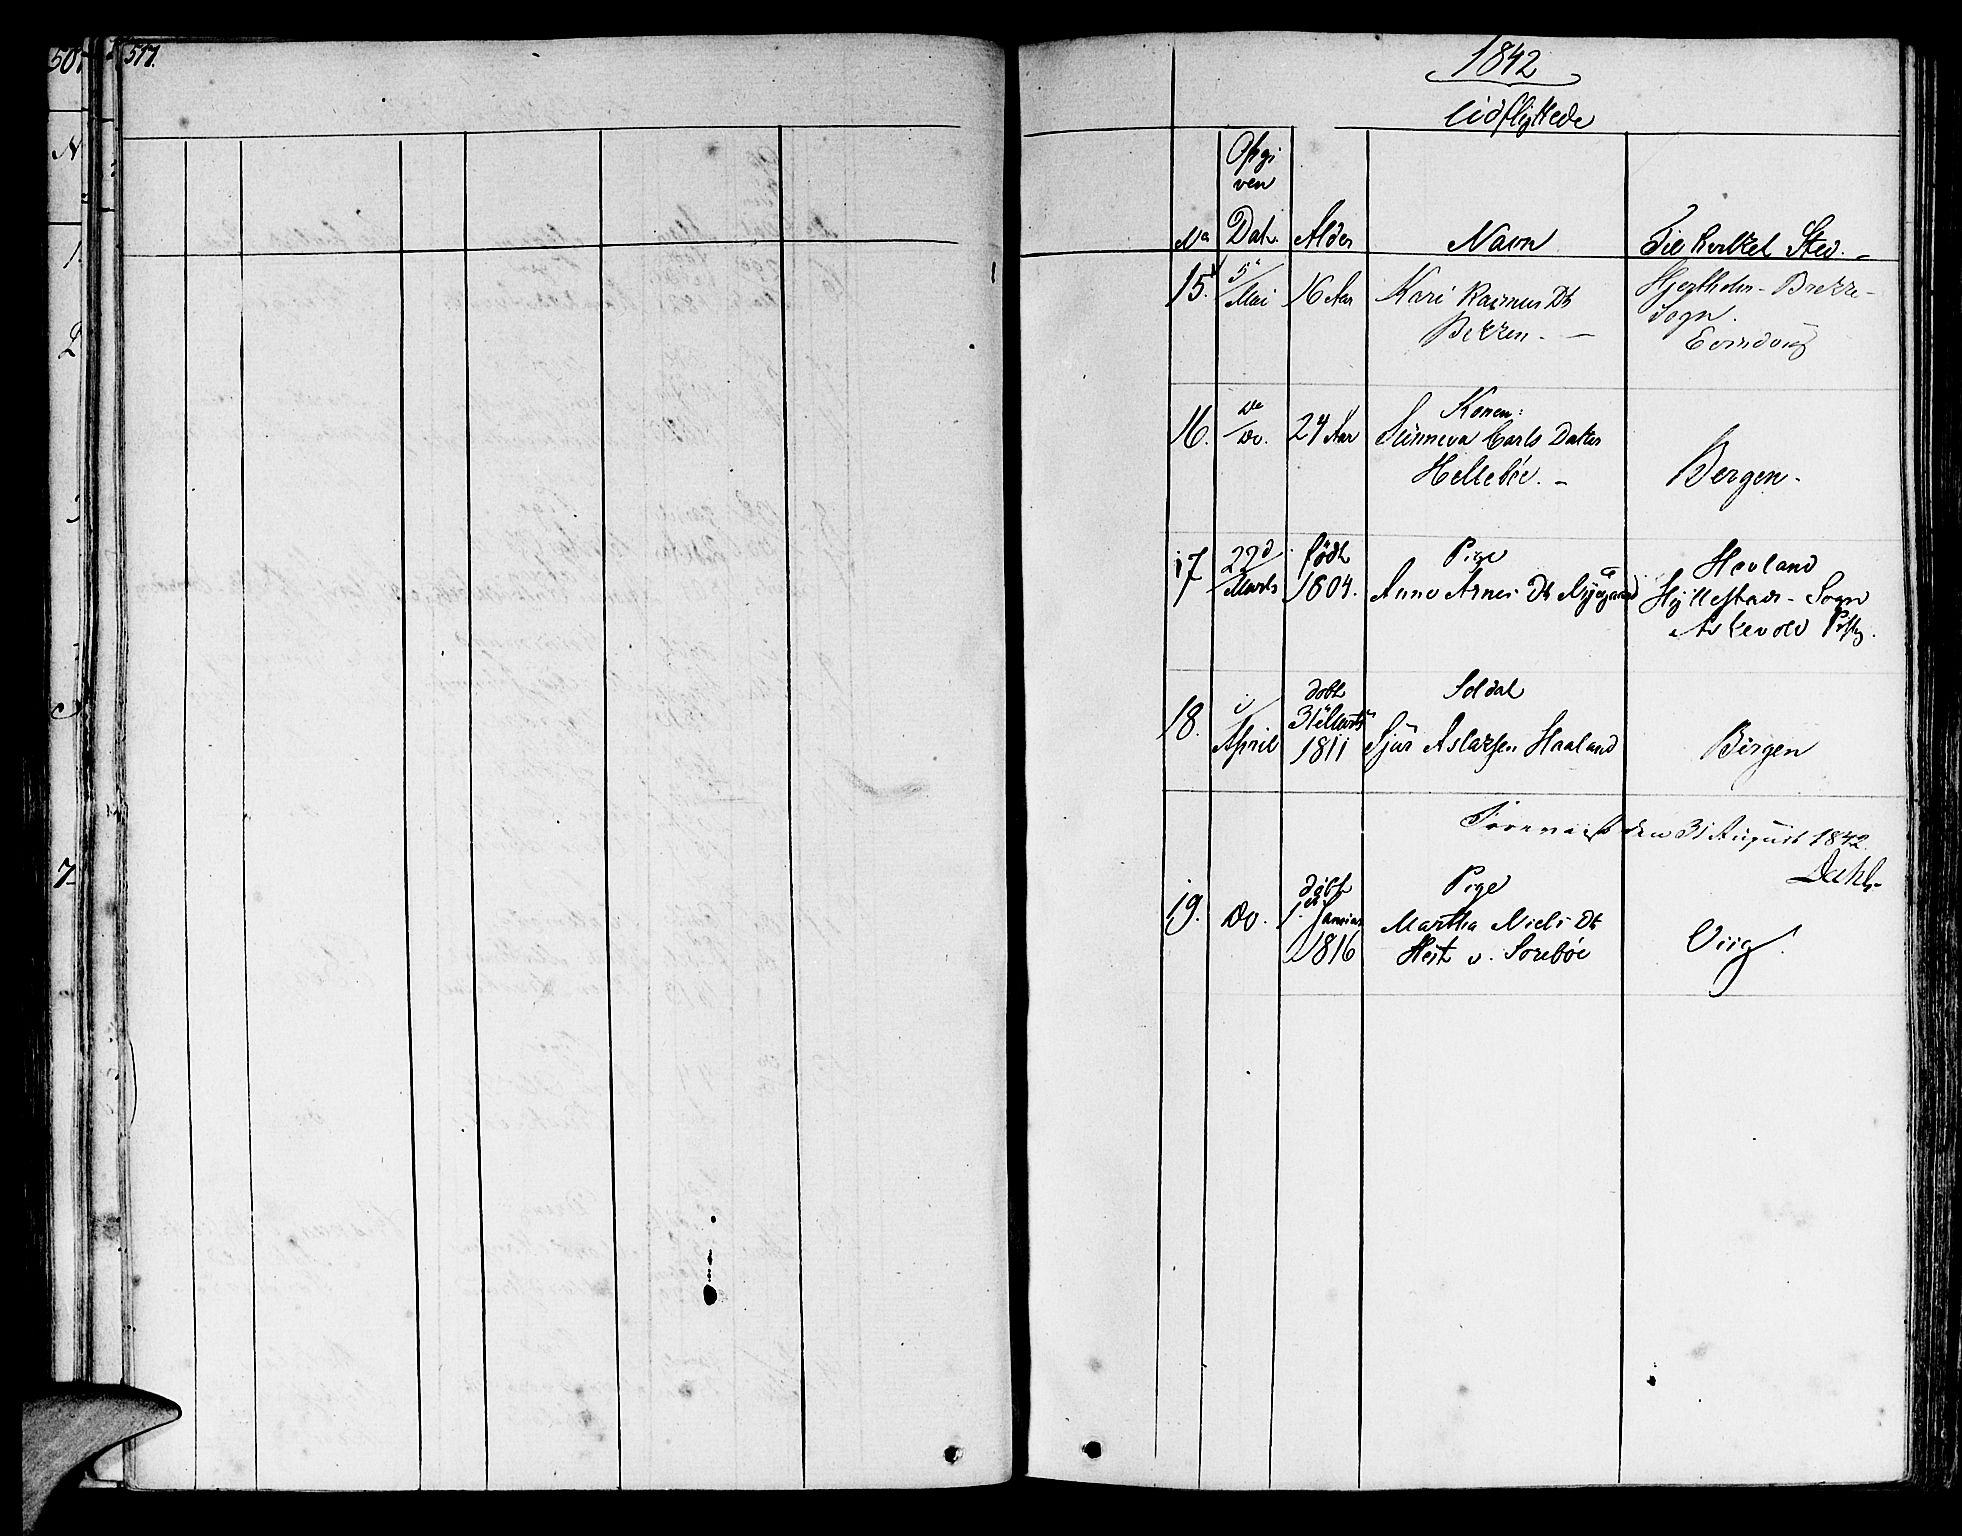 501
517.
1842
Udflyttede
Opgi
ven
No Dat. Alder Navn Til hvilket Sted.
15. 5te/Mai 16 Aar Kari Rasmus Dt
Bekken. Hjertholm - Brekke-
Sogn.
Evindvig
16. de/do. 24 Aar Konen:
Sünneva Carls Datter
Hellebøe. Bergen.
17 22d/Marts født
1804. Pige
Anne Arnes Dt Nygaard Hovland
Hyllestads - Sogn
Askevold
18. April døbt
31 Marts
1811 Soldat
Sjur Aslaksen Haaland Bergen
den 31 August 1842.
Dahl
19. do. døbt
1. Januar
1816 Pige
Martha Niels Dt
Hest v. Sørebøe Viig.
N
1.
2
3
7